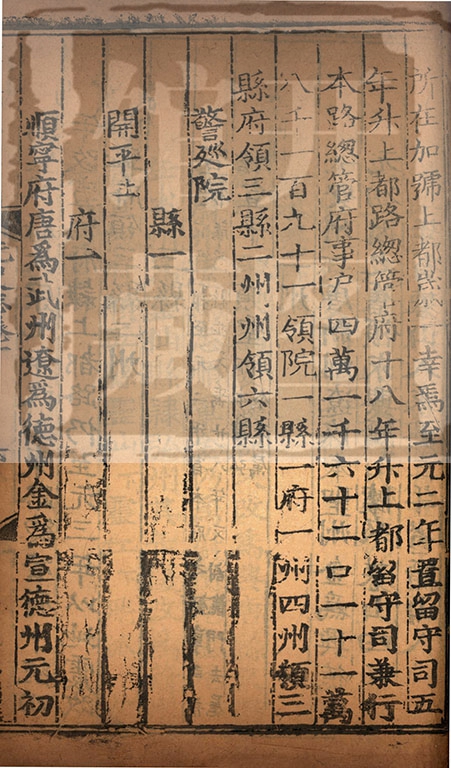 所在加號上都歲一幸焉至元二年置留守司五
年升上都路總管府十八年升上都留守司兼行
本路總管府事户四萬一千六十二口一十一萬
八千一百九十一領院一縣一府一州四州領三
縣府領三縣二州州領六縣
警廵院
縣一
開平上
府一
順寧府唐爲武州遼爲德州金爲宣德州元初